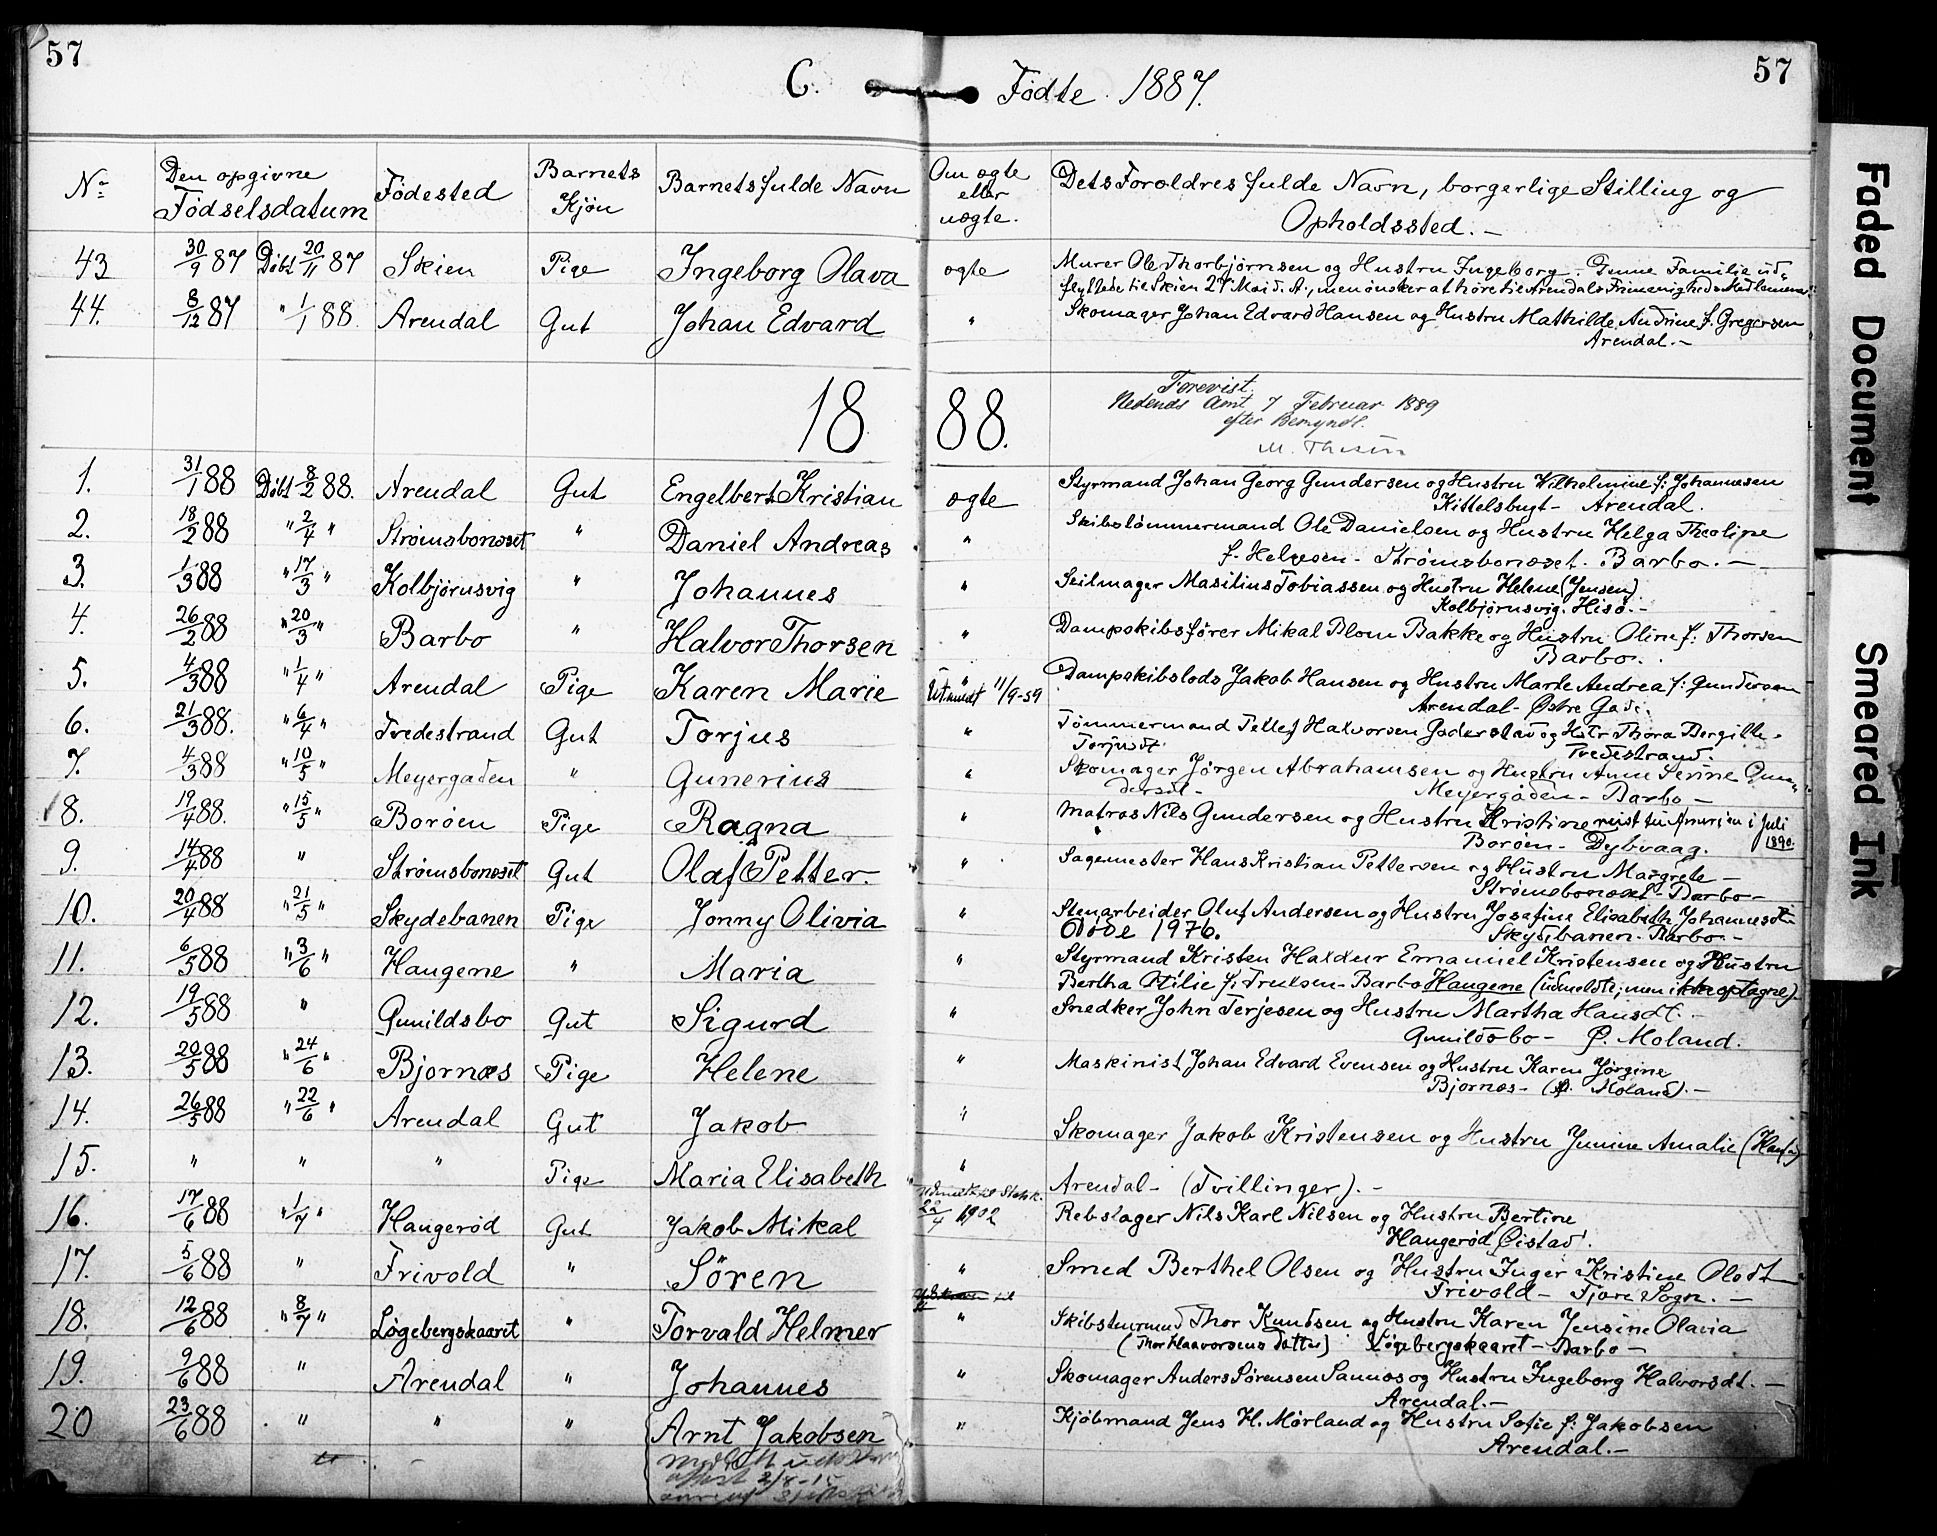 57
57
C. Födte 1887.
No
Den opgivne Födselsdatum
Födested
Barnets Kjön
Barnets fulde Navn
Om ægte eller uægte.
Dets Forældres fulde Navn, borgerlige Stilling og Opholdssted. –
43 30/9 87 Döbt 20/11 87 Skien Pige Ingeborg Olava ægte Murer Ole Thorbjørnsen og Hustru Ingeborg. Denne Familie ud-
flyttede til Skien 27 Mai d. A., men ønsker at høre til Arendals Frimenigheds Medlemmer.
44. 8/12 87 " 1/1 88. Arendal Gut Johan Edvard " Skomager Johan Edvard Hansen og Hustru Mathilde Andrine f. Gregersen
Arendal. –
1888.
Forevist.
Nedenæs Amt 7 Februar 1889
efter Bemyndt.
M. Thesen
1. 31/1 88 Döbt 8/2 88. Arendal Gut Engelbert Kristian ægte Styrmand Johan Georg Gundersen og Hustru Wilhelmine f. Johannesen
Kittelsbugt - Arendal.
2. 18/2 88 " 2/4 " Strømsbonæset " Daniel Andreas " Skibstømmermand Ole Danielsen og Hustru Helga Theoline
f. Helgesen - Strømsbonæset. Barbo. –
3. 1/3 88 " 17/3 " Kolbjørnsvig " Johannes " Seilmager Masilius Tobiassen og Hustru Helene (Jensen).
Kolbjørnsvig. Hisø. –
4. 26/2 88 " 20/3 " Barbo " Halvor Thorsen " Dampskibsfører Mikal Blom Bakke og Hustru Oline f. Thorsen
Barbo.
5. 4/3 88 " 1/4 " Arendal Pige Karen Marie " Utmeldt 11/9-59 Dampskibslods Jakob Hansen og Hustru Marte Andrea f. Gundersen
Arendal - Østre Gade.
6. 21/3 88. " 6/4 " Tvedestrand Gut Torjus " Tømmermand Tellef Halvorsen Goderstad og Hstr Thora Bergitte
Torjusdt. Tvedestrand.
7. 4/3 88 " 10/5 " Meyergaden " Gunerius " Skomager Jørgen Abrahamsen og Hustru Anne Serine Gun-
dersdt - Meyergaden - Barbo –
8. 19/4 88. " 15/5 " Borøen Pige Ragna " Matros Nils Gundersen og Hustru Kristine reist til Amerika i Juli 1890.
Borøen - Dybvaag.
9. 14/4 88 " Strømsbonæset Gut Olaf Petter. " Sagemester Hans Kristian Pettersen og Hustru Margrete –
Strømsbonæset - Barbo –
10. 20/4 88 " 21/5 " Skydebanen Pige Jonny Olivia " Stenarbeider Oluf Andersen og Hustru Josefine Elisabeth Johannesdt
Döde 1976. Skydebanen - Barbo. –
11. 6/5 88 " 3/6 " Haugene " Maria " Styrmand Kristen Haldur Emanuel Kristensen og Hustru
Bertha Otilie f. Trulsen - Barbo Haugene (udmeldte; men ikke optagne).
12. 19/5 88 " Gunildsbo Gut Sigurd " Snedker John Terjesen og Hustru Martha Hansdt. –
Gunildsbo - Ø. Moland.
13. 20/5 88 " 24/6 " Bjornæs Pige Helene " Maskinist Johan Edvard Evensen og Hustru Karen Jørgine
Bjornæs - (Ø. Moland). –
14. 26/5 88 " 22/6 " Arendal Gut Jakob " Skomager Jakob Kristensen og Hustru Junine Amalie
15. " " " Pige Maria Elisabeth " Arendal - (Tvillinger). –
16. 17/6 88 " 1/7 " Haugerød Gut Jakob Mikal Udmeldt til Statsk. 22/4 1902 Rebslager Nils Karl Nilsen og Hustru Bertine
Haugerød Øistad.
17. 5/6 88 " Frivold " Sören " Smed Berthel Olsen og Hustru Inger Kristine Olsdt
Frivold - Fjære Sogn. –
18. 12/6 88 " 8/7 " Løgebergskaaret " Torvald Helmer " Skibsturmand Thor Knudsen og Hustru Karen Jensine Olavia
(Thor Haavorsens Datter) Løgebergskaaret - Barbo –
19. 9/6 88 " Arendal " Johannes " Skomager Anders Sørensen Sannæs og Hustru Ingeborg Halvorsdt. –
Arendal. –
20 23/6 88 " " " Arnt Jakobsen " Kjøbmand Jens H. Mørland og Hustru Sofie f. Jakobsen
Arendal. –
Faded Document
Smeared Ink